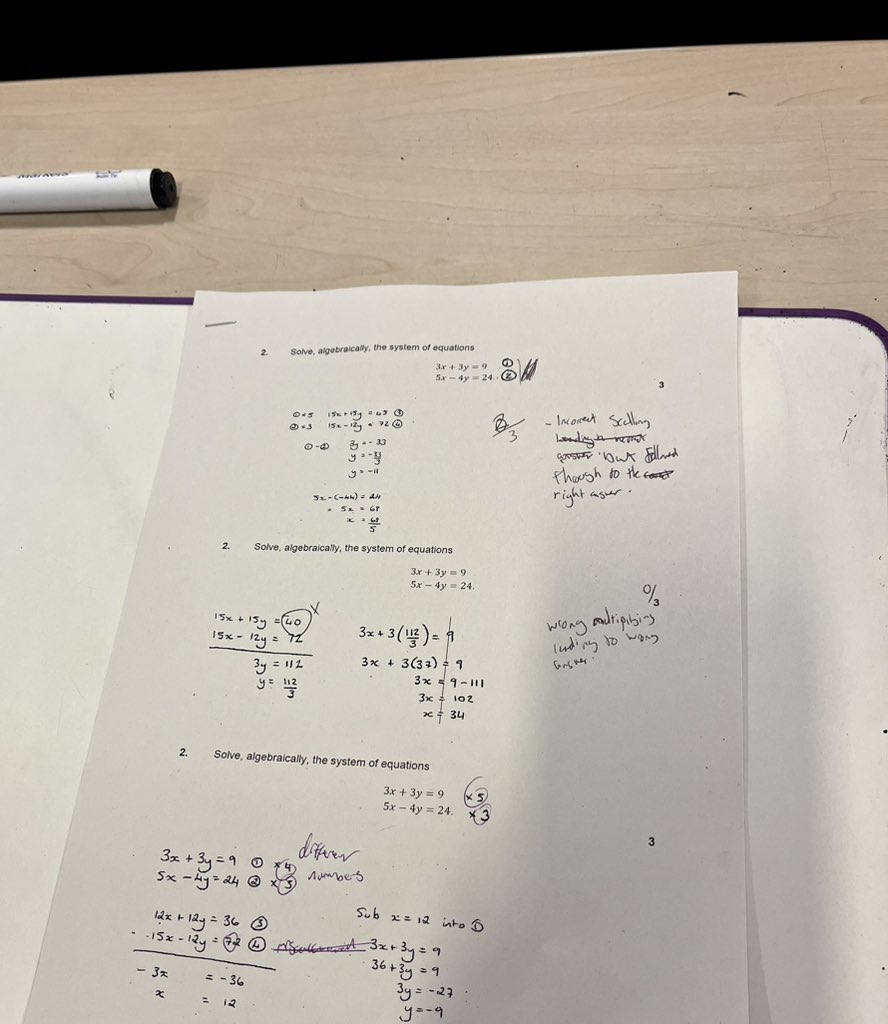 2. Solve, algebraically, the system of equations
3x + 3y = 9 ①
5x − 4y = 24. ②
3
①×5 15x+15y = 45 ③
②×3 15x−12y = 72 ④
①-② 3y = -33
y = -33/3
y = -11
5x-(-44) = 24
= 5x = 68
x = 68/5
/3
- Incorrect Scalling
but followed
through to the
right answer.
2. Solve, algebraically, the system of equations
3x + 3y = 9
5x − 4y = 24.
15x + 15y = 40 x
15x - 12y = 72
3y = 112
y = 112/3
3x + 3(112/3) = 9
3x + 3(37) = 9
3x = 9-111
3x = 102
x = 34
0/3
wrong multiplying
leading to wrong
answer.
2. Solve, algebraically, the system of equations
3x + 3y = 9 ×5
5x − 4y = 24. ×3
3
different
numbers
3x + 3y = 9 ① ×4
5x - 4y = 24 ② ×3
12x + 12y = 36 ③
- 15x - 12y = 72 ④
- 3x = -36
x = 12
Sub x = 12 into ①
3x+3y = 9
36+3y = 9
3y = -27
y = -9